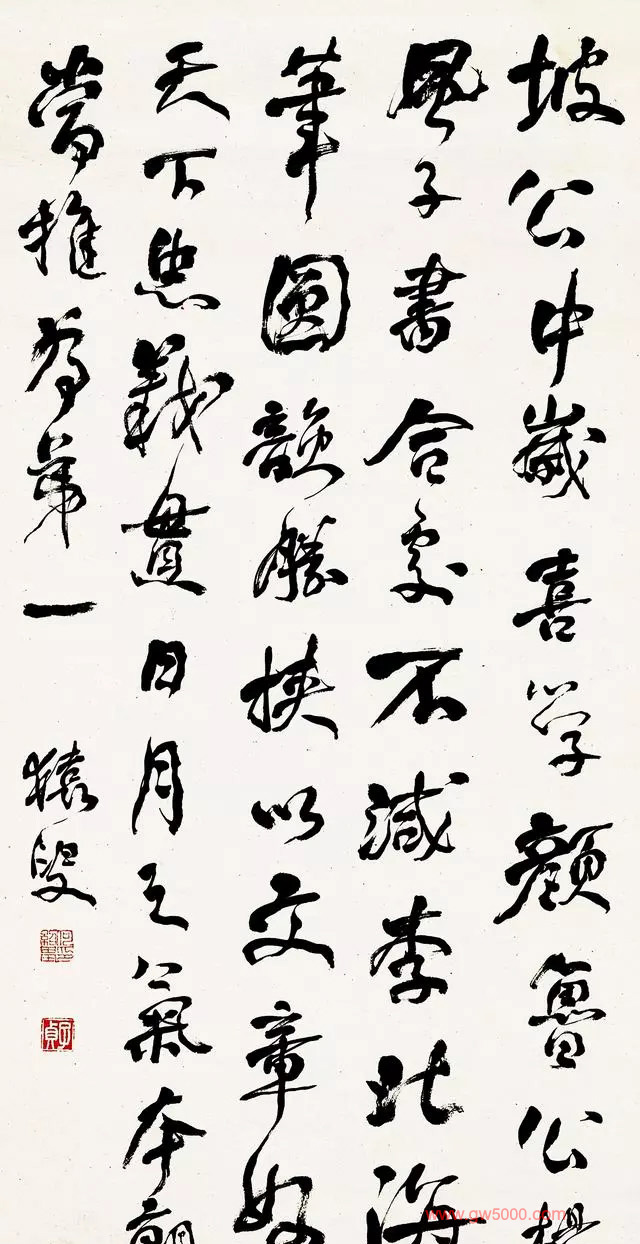 坡公中歲喜学顔魯公楊
風子書合處不減李北海
筆圓韻勝挾以文章妙
天下忠義貫日月之氣本朝
當推為第一
猿叟
子貞
www.gw5000.com